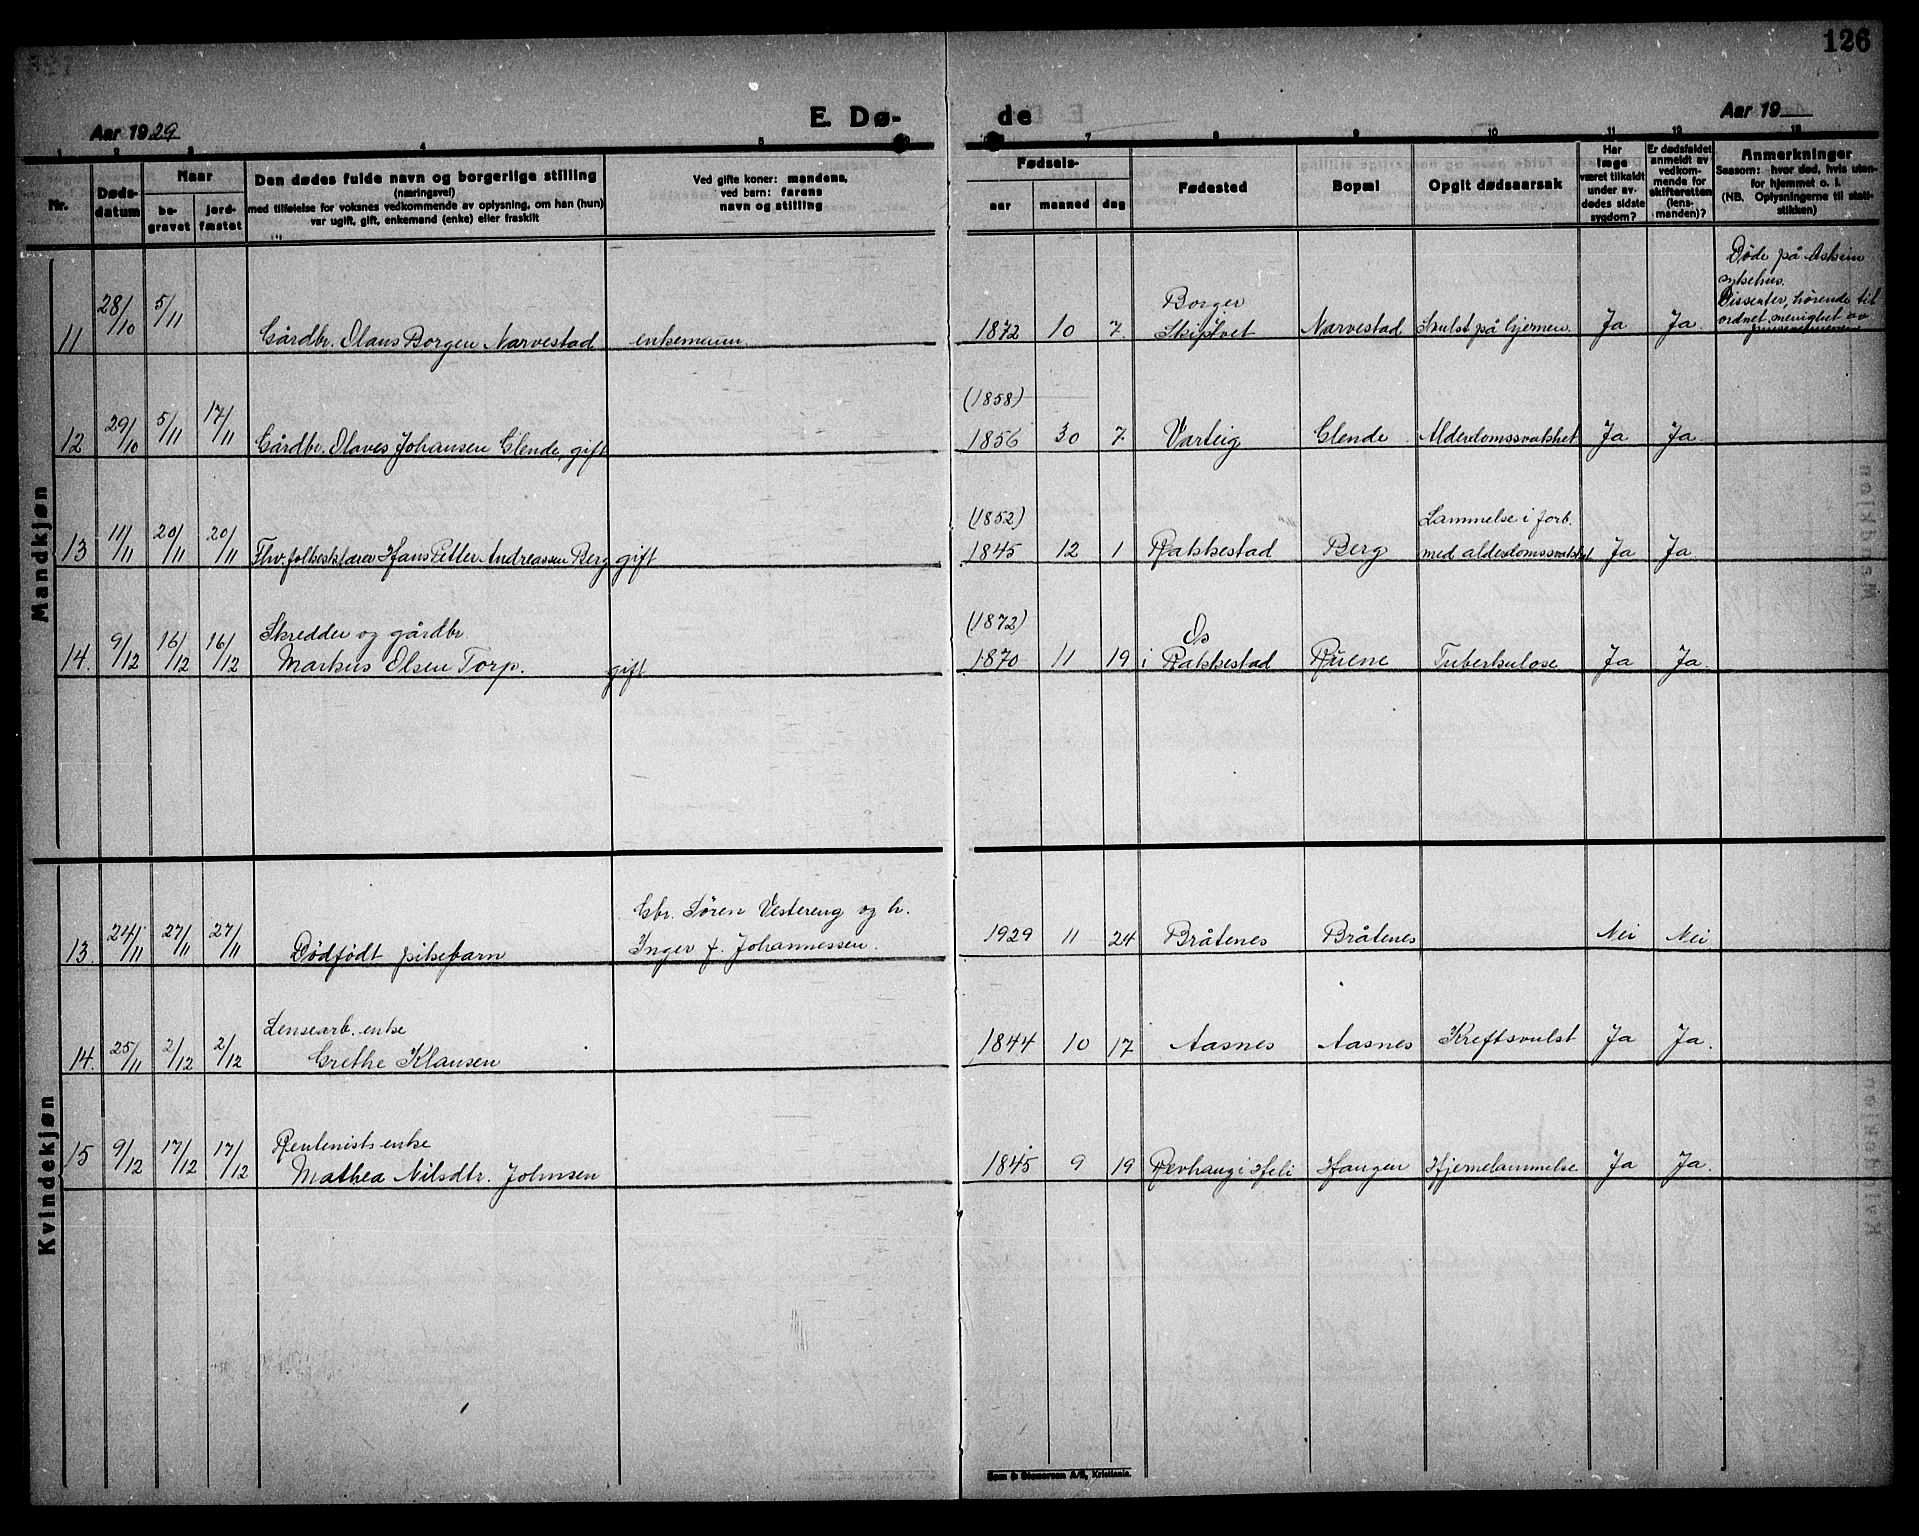 126
E. Dø- de
Aar 1929
Aar 19
1 2 3 4 5 7 8 9 10 11 12 13
Nr.
Døds-
datum
Naar
be-
gravet
jord-
fæstet
Den dødes fulde navn og borgerlige stilling
(næringsvei)
med tilføielse for voksnes vedkommende av oplysning, om han (hun)
var ugift, gift, enkemand (enke) eller fraskilt
Ved gifte koner: mandens,
ved barn: farens
navn og stilling
Fødsels-
aar maaned dag
Fødested
Bopæl
Opgit dødsaarsak
Har
læge
været tilkaldt
under av-
dødes sidste
sygdom?
Er dødsfaldet
anmeldt av
vedkom-
mende for
skifteretten
(lens-
manden)?
Anmerkninger
Saasom: hvor død, hvis uten-
for hjemmet o. l.
(NB. Oplysningerne til stati-
stikken)
Mandkjøn
11 28/10 5/11 Gårdbr. Olaus Borgen Narvestad enkemann 1872 10 7. Borger Skiptvet Narvestad Svulst på hjernen. Ja Ja.
Døde på Askim
sykehus.
Dissenter, hørende til
ordnet menighet av
12 29/10 5/11 17/11 Gårdbr. Olaves Johansen Glende, gift (1858) 1856 30 7. Varteig Glende Alderdomssvakhet Ja Ja
13 11/11 20/11 20/11 Fhv. folkeskolelærer Hans Petter Andreassen Berg gift (1852) 1845 12 1 Rakkestad Berg Lammelse i forb. med alderdomssvakhet Ja Ja.
14. 9/12 16/12 16/12 Skredder og gårdbr.
Markus Olsen Torp. gift (1872) 1870 11 19 Os i Rakkestad Ruene Tuberkulose Ja Ja.
Kvindekjøn
13 24/11 27/11 27/11 Dødfødt pikebarn Gbr. Søren Vestereng og h.
Inger f. Johannessen. 1929 11 24 Bråtenes Bråtenes Nei Nei
14. 25/11 2/12 2/12 Lensearb. enke
Grethe Klausen 1844 10 17 Aasnes Aasnes Kreftsvulst Ja Ja.
15 9/12 17/12 17/12 Rentenists enke
Mathea Nilsdtr. Johnsen 1845 9 19 Revhaug i Heli Haugen Hjernelammelse Ja Ja.
Sem & Stenersen A/S, Kristiania.